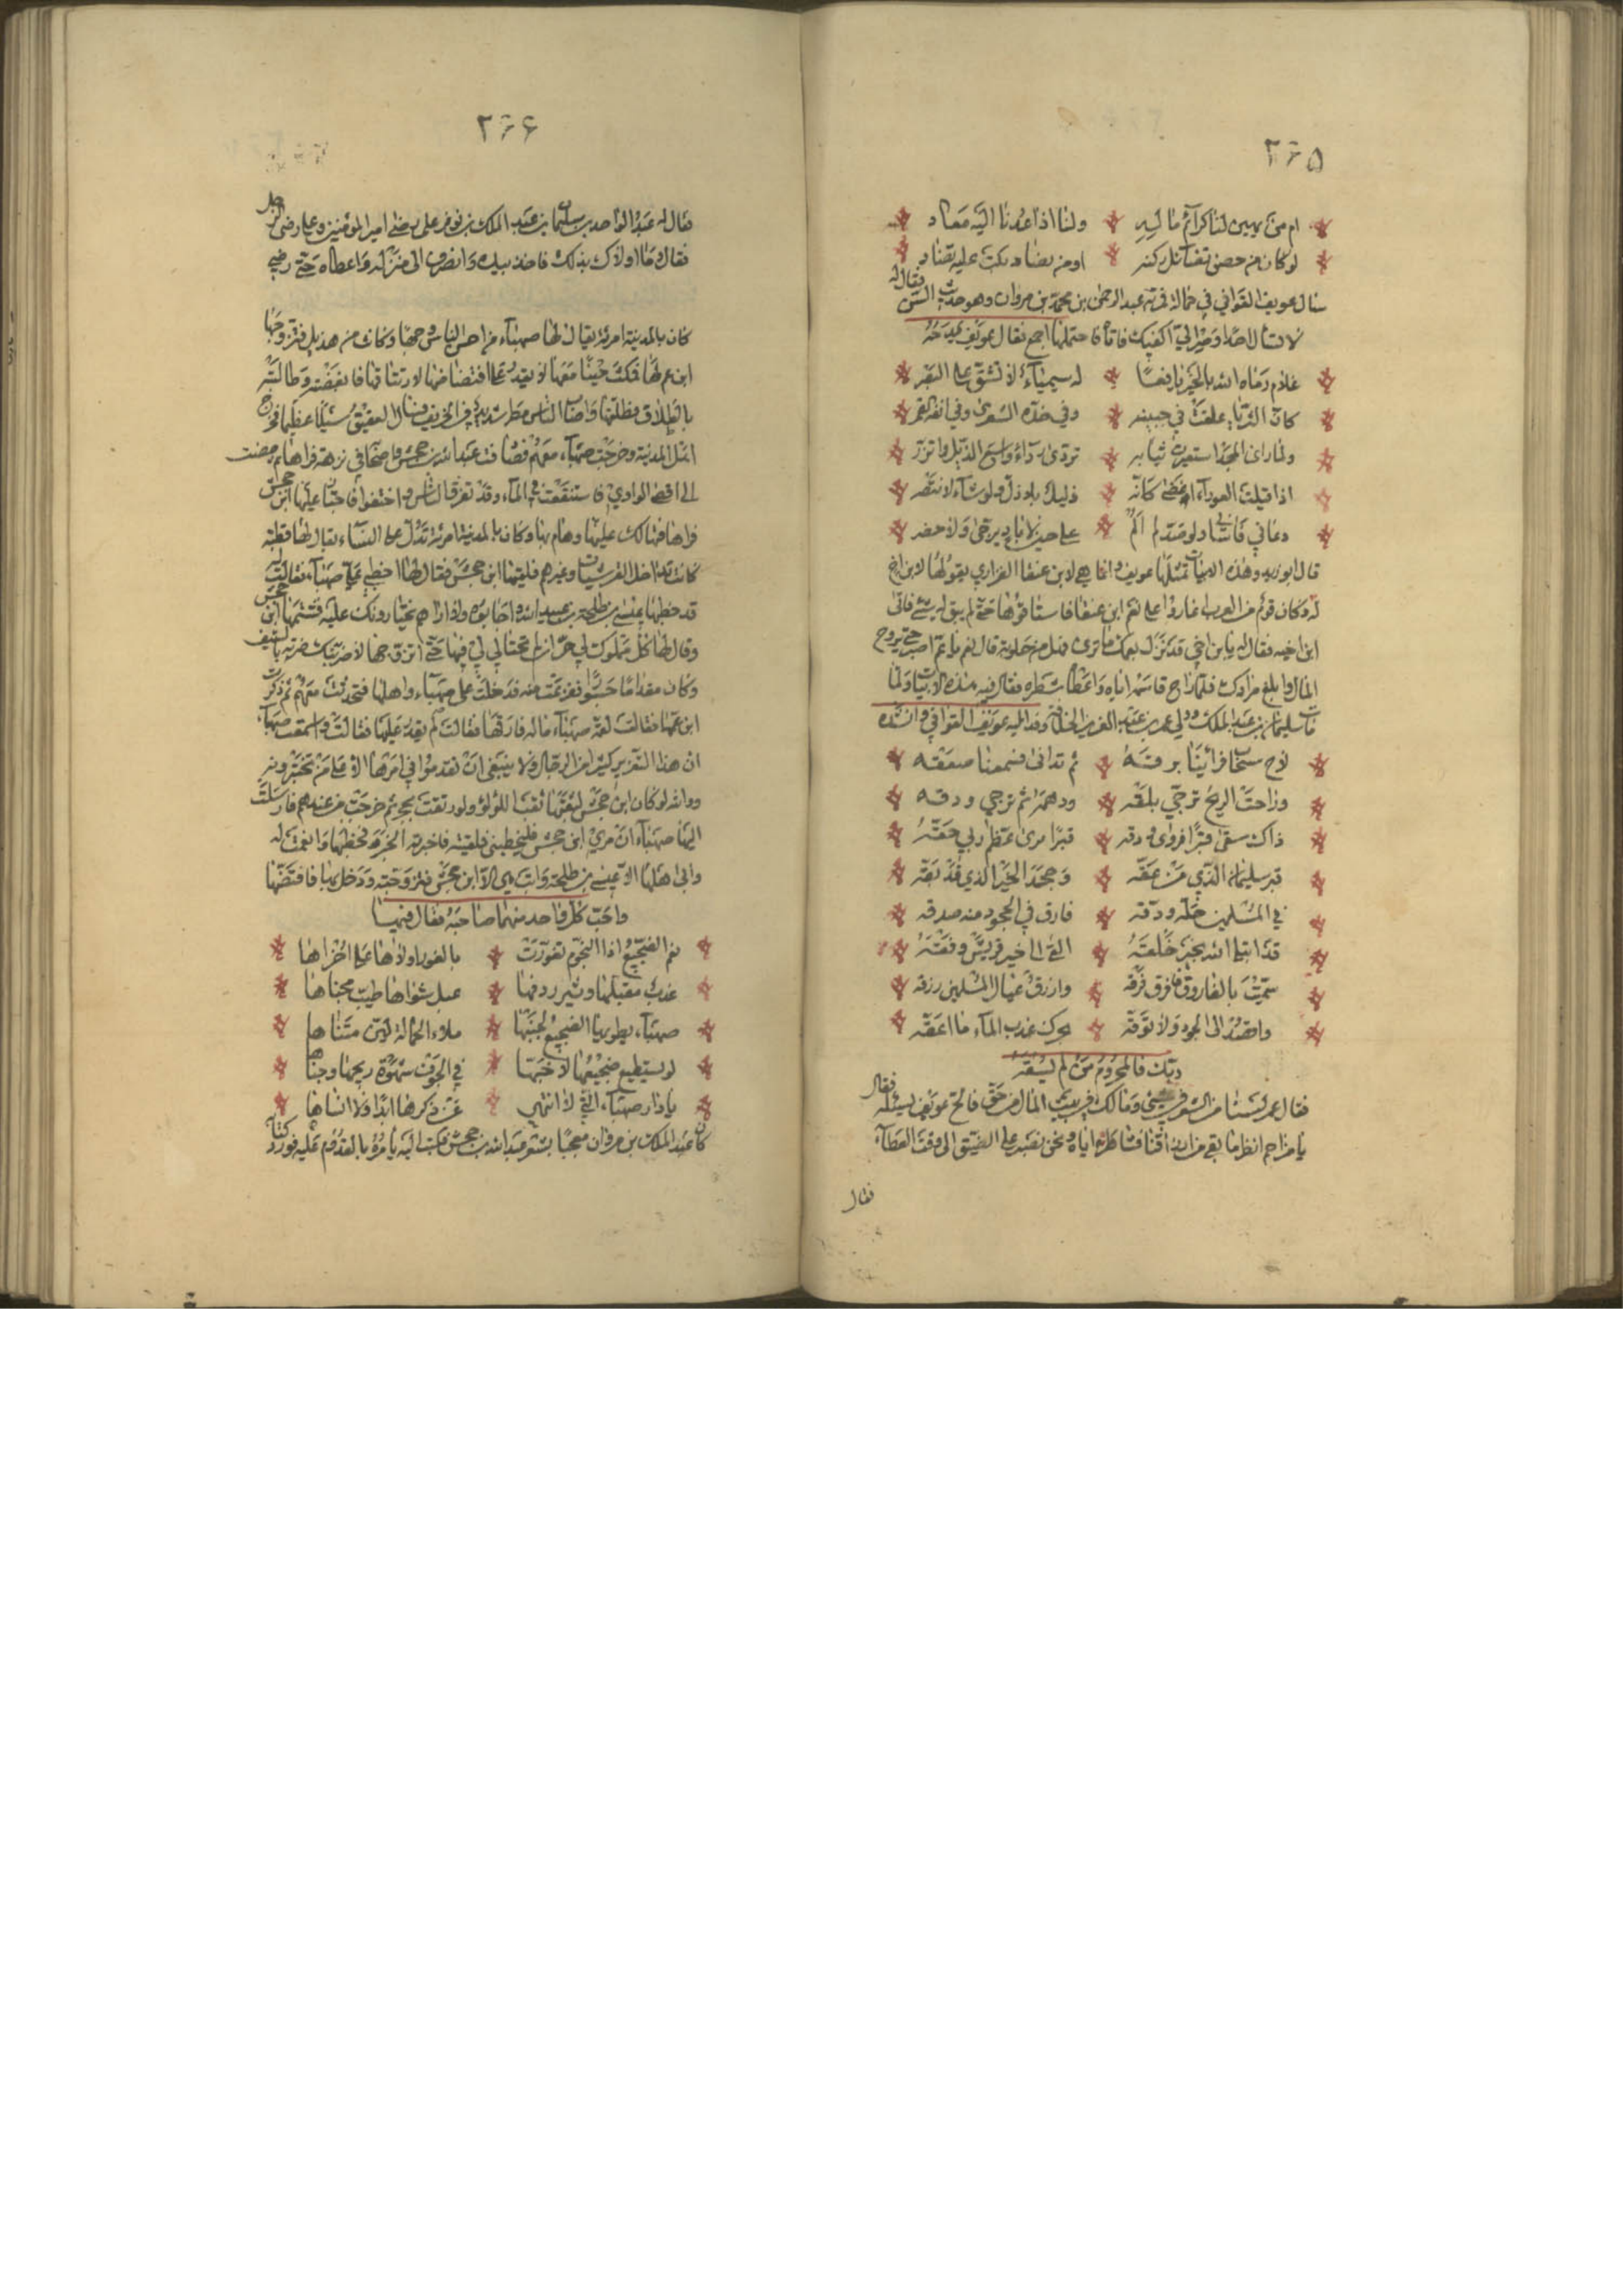 ٢٦٥
ام من يهين لنا كرائم ماليه ولنا اذا عدنا اليه معاد
لو كان من حصن تضاءل ركنه او من نضاد بكت عليه نضاد
سال عويف القوافي في حمالة فمر به عبد الرحمن بن محمد بن مروان وهو حدث السن فقال له
لا تسال احدا وصر الي اكفيك فاتاه فاحتملها اجمع فقال عويف يمدحه
غلام رماه الله بالخير يافعا له سيمياء لا تشق على البصر
كان الثريا علقت في جبينه وفي خده الشعرى وفي انفه القمر
ولما راى المجد استعيرت ثيابه تردى رداء واسع الذيل واتزر
اذا قيلت العوراء اغضى كانه ذليل بلا ذل ولو شاء لانتصر
دعاني فاساني ولو صد لم الم على حين لا باد يرجى ولا حضر
قال ابو زيد وهذه الابيات تمثلها عويف وانما هي لابن عنقا الفزاري يقولها لابن اخ
له وكان قوم من العرب اغاروا على نعم ابن عنقا فاستاقوها حتى لم يبق له شيء فاتى
ابن اخيه فقال له يابن اخي قد نزل بعمك ما ترى فهل من حلوبة قال نعم يا عم اصبر حتى يروح
المال وابلغ مرادك فلما راح قاسمه اياه واعطاه شطره فقال فيه هذه الابيات ولما
مات سليمان بن عبد الملك وولي عمر بن عبد العزيز الخلافة وفد اليه عويف القوافي وانشده
لاح سحاب فراينا برقه ثم تدانى فسمعنا صعقه
وراحت الريح تزجي بلقه ودهمه ثم تزجي ودقه
ذاك سقى قبرا فروى ودقه قبر امرئ عظم ربي حقه
قبر سليمان الذي من عقه وجحد الخير الذي قد بقه
في المسلمين جله ودقه فارق في الجحود منه صدقه
قد ابتلى الله بخير خلقه القى الى خير قريش وفقه
سميت بالفاروق فافرق فرقه وارزق عيال المسلمين رزقه
واقصد الى الجود ولا توقه بحرك عذب الماء ما اعقه
ربك فالمحروم من لم يسقه
فقال عمر لسنا من الشعر في شيء ومالك في بيت المال من حق فالح عويف يسئله فقال
يا مزاحم انظر ما بقي من ارزاقنا فشاطره اياه ونحن نصبر على الضيق الى وقت العطاء
فقال
٢٦٦
فقال له عبد الواحد بن سليمان بن عبد الملك بن توفر على يرضى امير المؤمنين وعلي رضى الرجل
فقال ما اولاك بذلك فاخذ بيده وانصرف الى منزله واعطاه حتى رضي
كان بالمدينة امرئة يقال لها صهباء من احسن الناس وجها وكانت من هذيل فتزوجها
ابن عم لها فمكث حينا معها لا يقدر على افتضاضها لارتتاقها فابغضته وطالبته
بالطلاق فطلقها واصاب الناس مطر شديد في الخريف فسال العقيق سيلا عظيما فخرج
اهل المدينة وخرجت صهباء معهم فصادفت عبد الله بن جحش واصحابه في نزهة فراها ثم مضت
الى اقصى الوادي فاستنقعت في الماء وقد تفرق الناس واختفوا فاجتاز عليها ابن جحش
فراها فتهالك عليها وهام بها وكان بالمدينة امرئة تدل على النساء يقال لها قطبة
كانت تداخل القرشيات وغيرهم فلقيها ابن جحش فقال لها اخطبي علي صهباء فقالت له
قد خطبها عيسى بن طلحة بن عبيد الله واجابوه ولا اراهم يختارونك عليه فشتمها ابن جحش
وقال لها كل مملوك لي حر ان لم تحتالي لي فيها حتى اتزوجها لاضربنك ضربة بالسيف
وكان مقداما جسورا ففزعت منه فدخلت على صهباء واهلها فتحدثت معهم ثم ذكرت
ابن عمها فقالت لعمة صهباء ما له فارقها فقالت لم يقدر عليها فقالت واسمعت صهباء
ان هذا ليعتري كثيرا من الرجال ولا ينبغي ان تقدموا في امرها الا على من تختبرونه
ووالله لو كان ابن جحش لثقبها ثقب اللؤلؤ ولو رتقت بحجر ثم خرجت من عندهم فارسلت
اليها صهباء ان مري ابن جحش فليخطبني فلقيته فاخبرته الخبر فخطبها وانعمت له
وابى اهلها الا عيسى بن طلحة وابت هي الا ابن جحش فتزوجته ودخل بها فافتضها
واحب كل واحد منهما صاحبه فقال فيها
نعم الضجيع اذا النجوم تغورت بالغور اولاها على اخراها
عذب مقبلها وثير ردفها عبل شواها طيب مجناها
صهباء يطويها الضجيع لجنبها ملاء الحمالة لين متناها
لو يستطيع ضجيعها لاجنها في الجوف شهوة ريحها وجناها
يا دار صهباء التي لا انتهي عن ذكرها ابدا ولا انساها
كان عبد الملك بن مروان معجبا بشعر عبد الله بن جحش فكتب اليه يامره بالقدوم عليه فورد كتابه